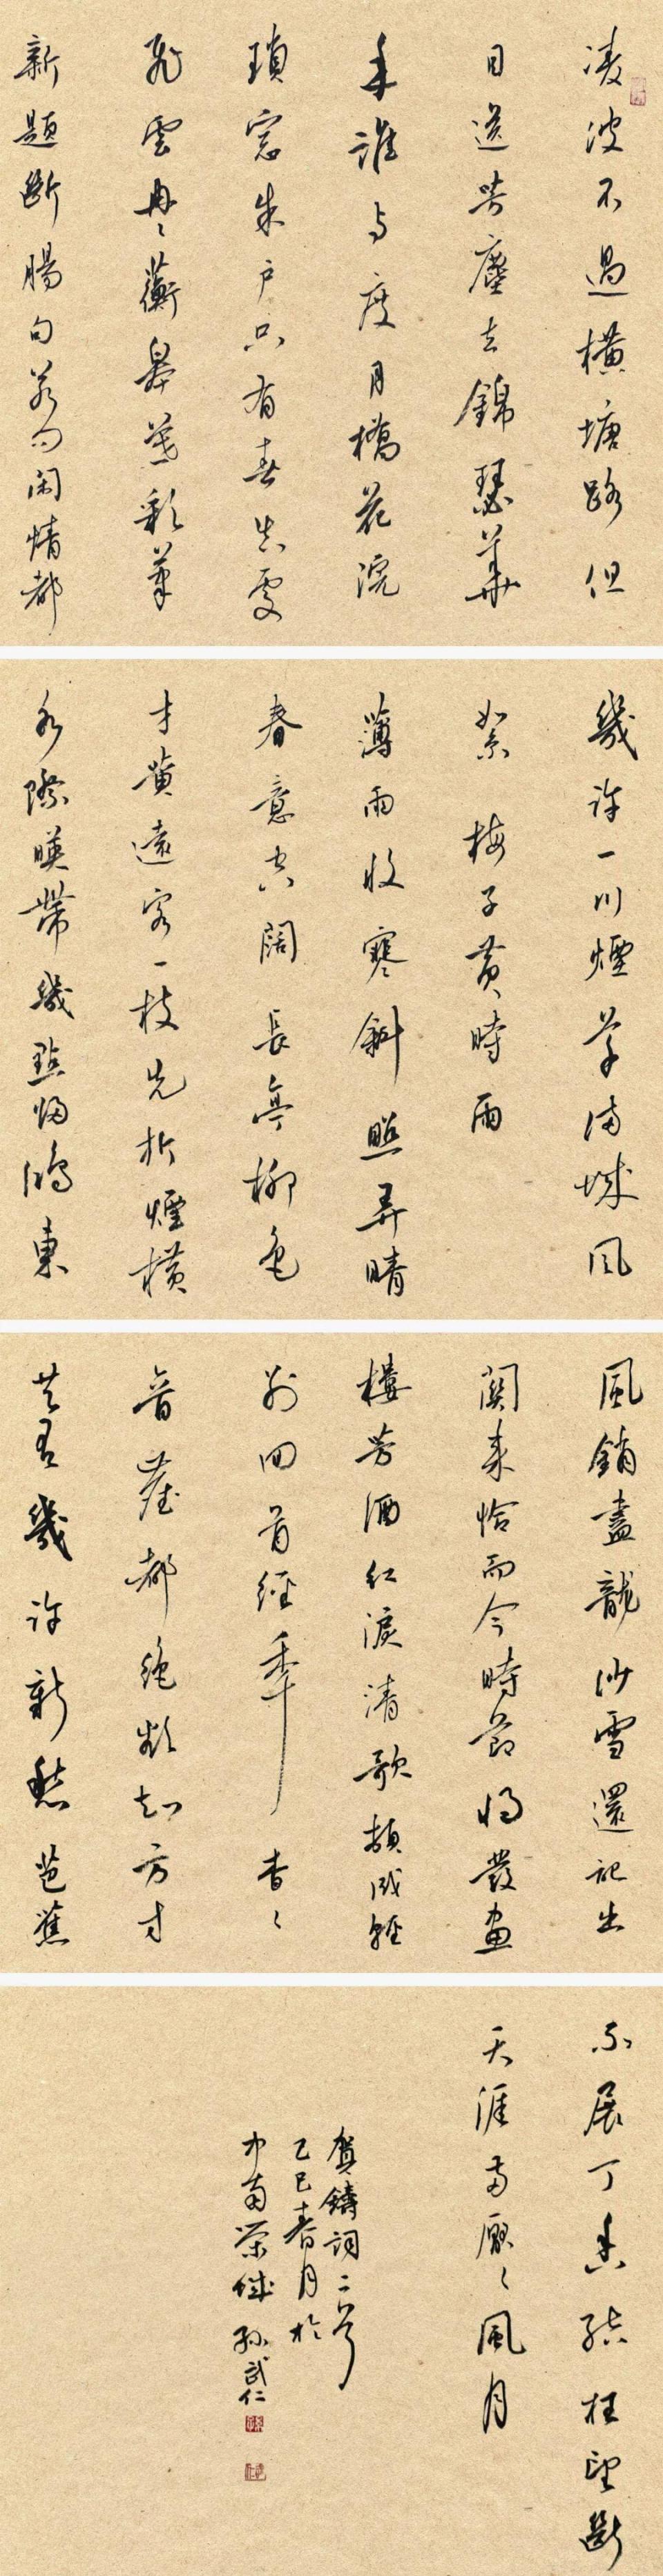 凌波不過橫塘路但
目送芳塵去錦瑟華
年誰与度月橋花院
瑣窓朱戶只有春知處
飛雲冉々蘅皋暮彩筆
新題斷腸句若問閑情都
幾許一川煙草滿城風
絮 梅子黃時雨
薄雨收寒斜照弄晴
春意空闊長亭柳色
才黃遠客一枝先折煙橫
水際映帶幾點歸鴻東
風銷盡龍沙雪還記出
關來恰而今時節將發畫
樓芳酒紅淚清歌頓成輕
別回首經年杳々
音塵都絕欲知方寸
共有幾許新愁芭蕉
不展丁香結枉望斷
天涯兩厭々風月
賀鑄詞二首
乙巳春月於
南榮城孫武仁